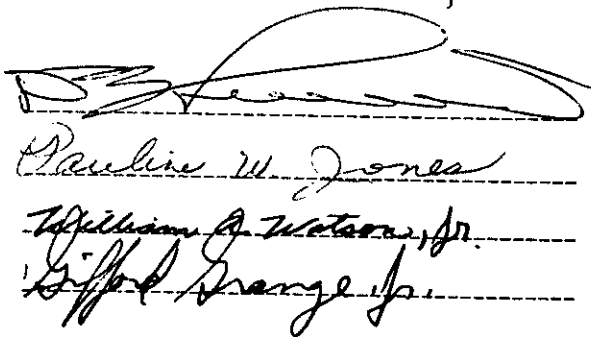 Pauline W. Jones
William A. Watson, Jr.
Gifford Grange Jr.